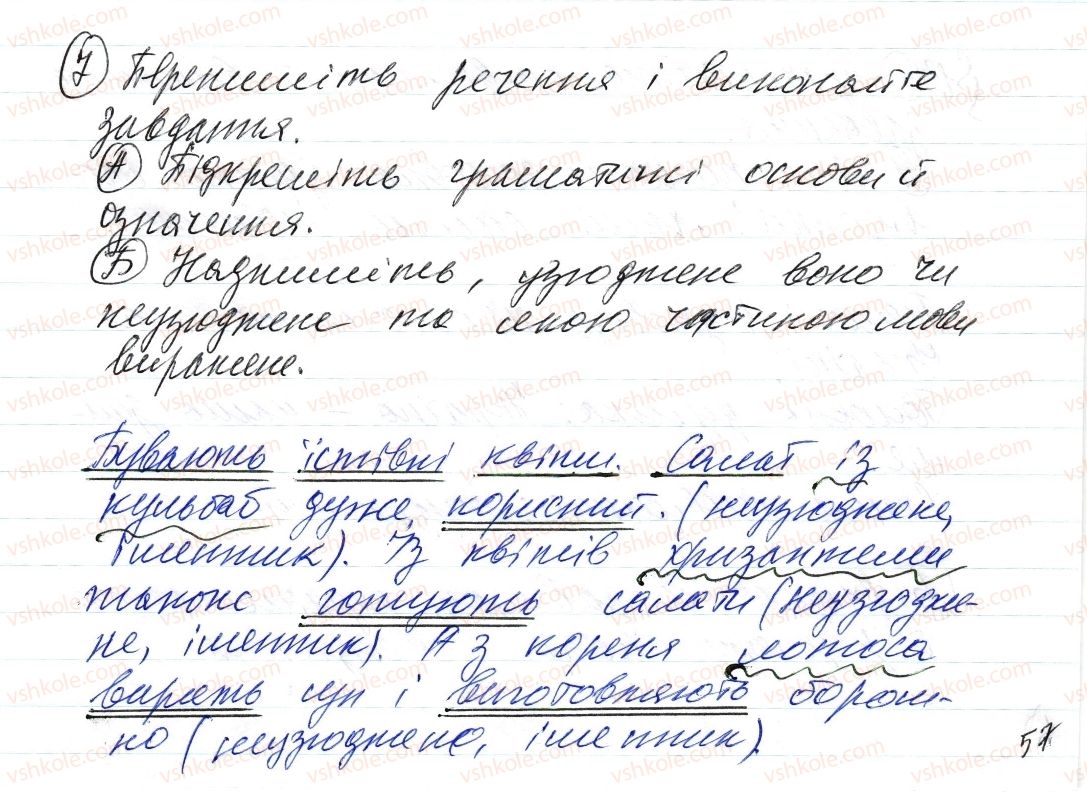 7 Перепишіть речення і виконайте
завдання.
А Підкресліть граматичні основи й
означення.
Б Надпишіть, узгоджене воно чи
неузгоджене та якою частиною мови
виражене.
Бувають їстівні квіти. Салат із
кульбаб дуже корисний. (неузгоджене,
іменник). Із квітів хризантеми
також готують салати (неузгодже-
не, іменник). А з кореня лотоса
варять суп і виготовляють борош-
но (неузгоджено, іменник).
57